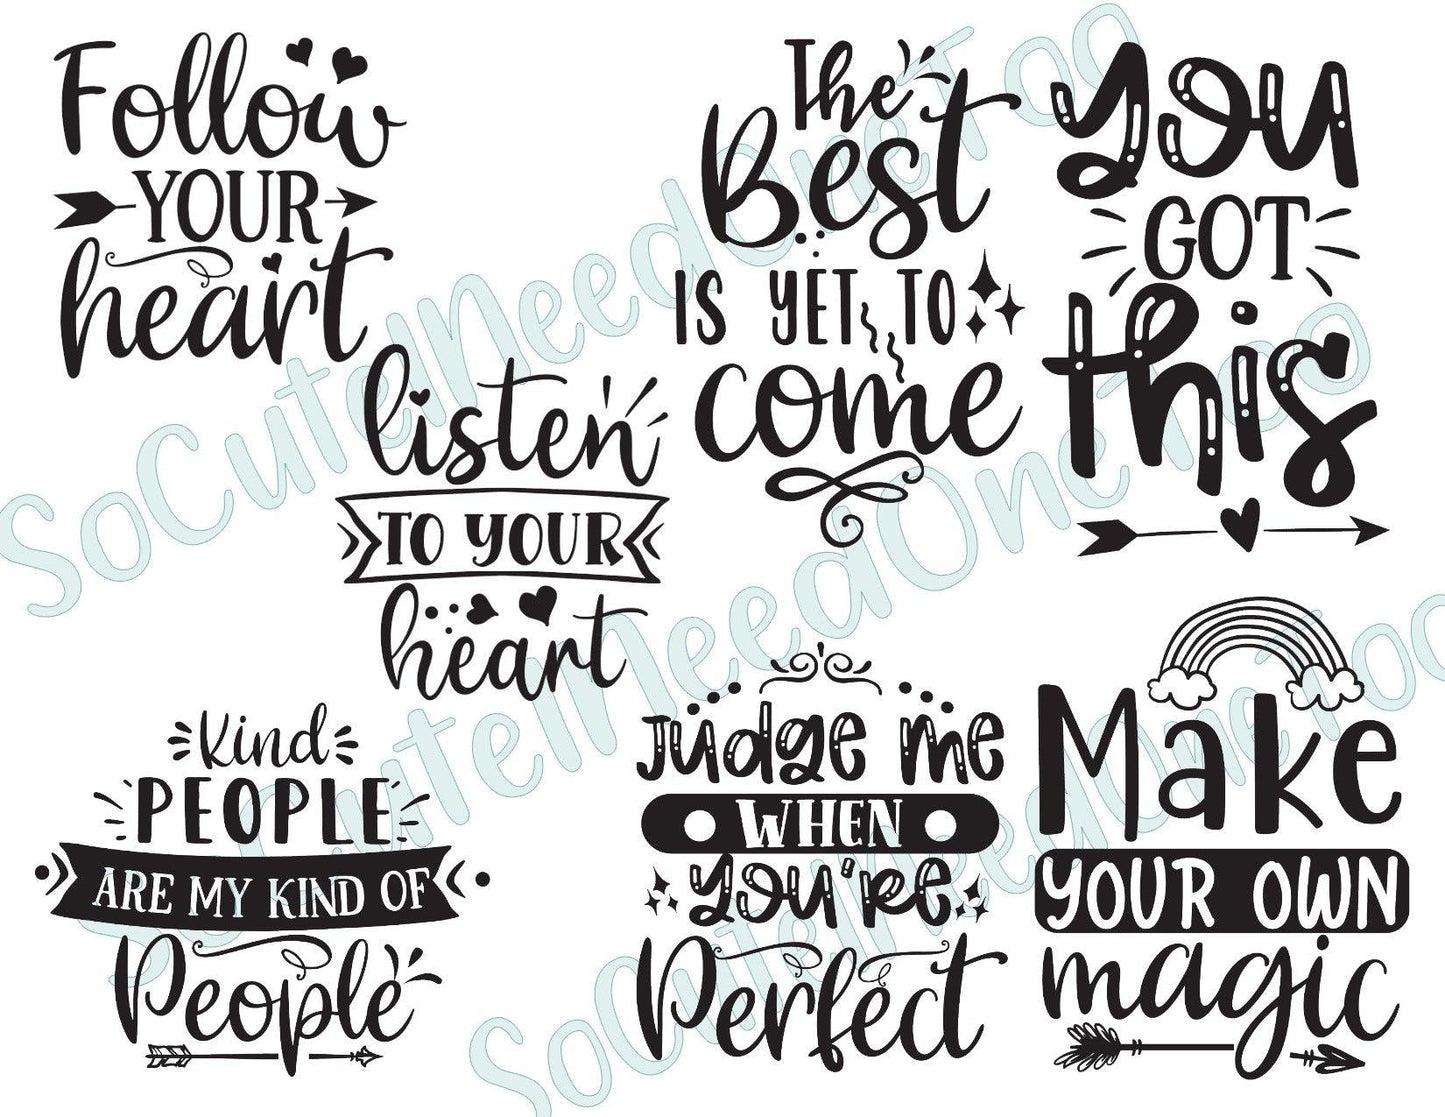 Follow
YOUR
heart
The
Best
IS YET TO
come
you
GOT
this
listen
TO YOUR
heart
Kind
PEOPLE
ARE MY KIND OF
People
Judge me
WHEN
you're
Perfect
Make
YOUR OWN
magic
SoCuteINeedOneToo
SoCuteINeedOneToo
SoCuteINeedOneToo